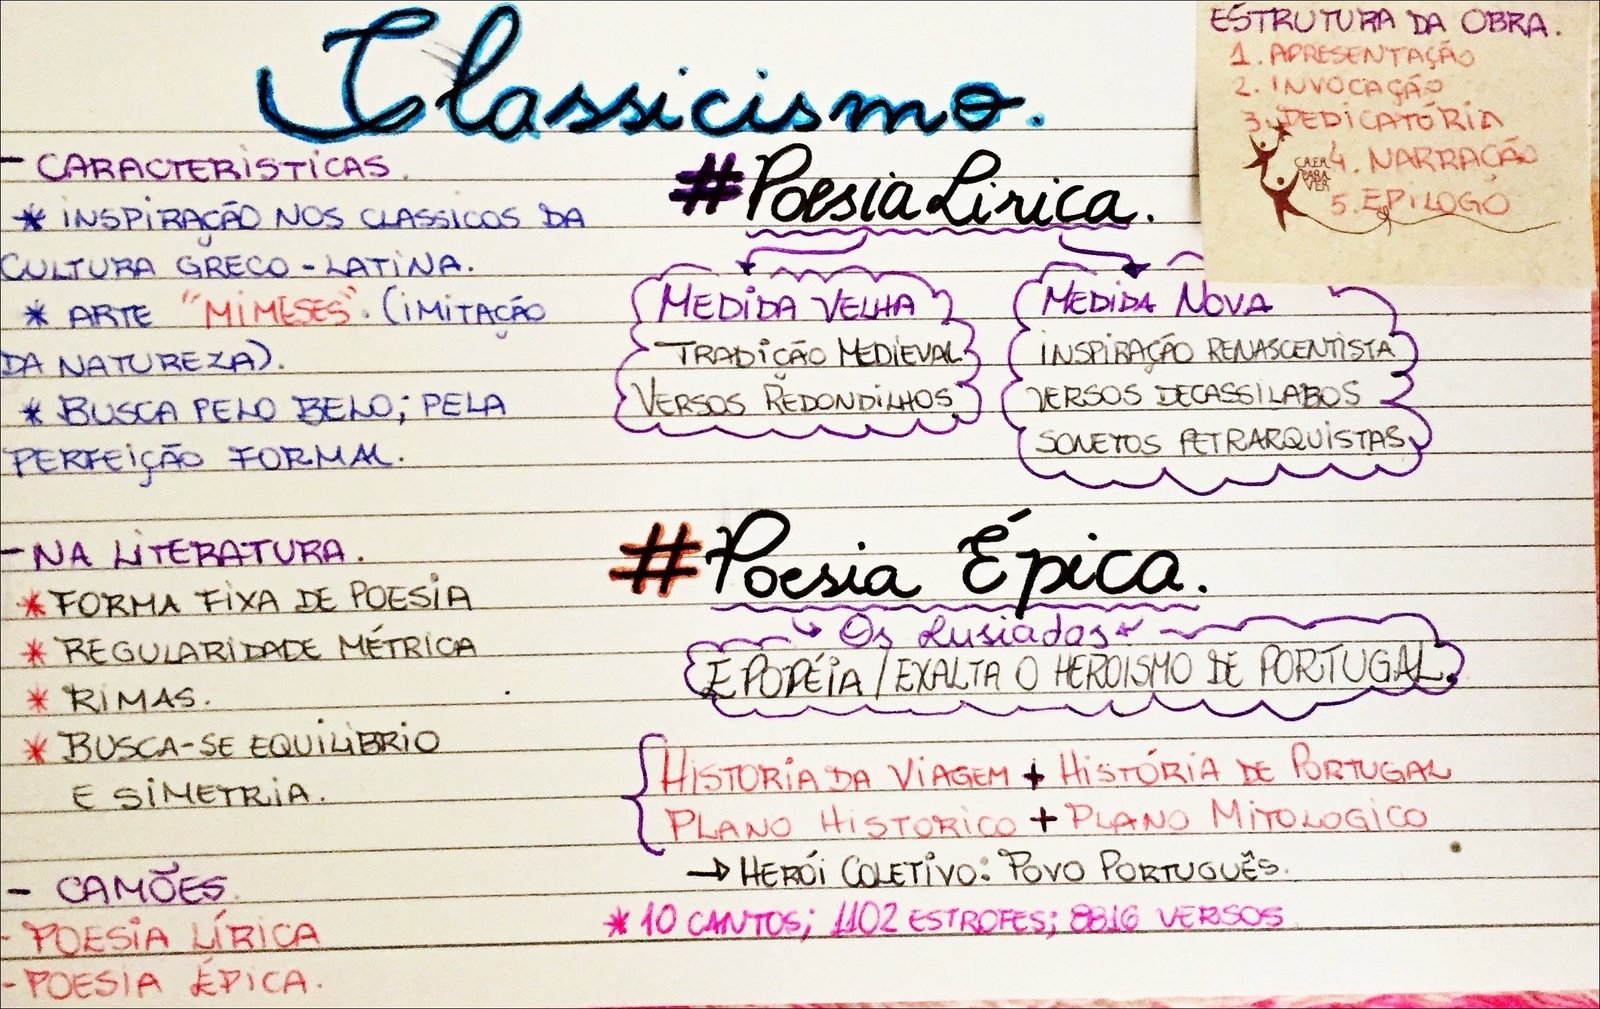 Classicismo.
ESTRUTURA DA OBRA.
1. APRESENTAÇÃO
2. INVOCAÇÃO
3. DEDICATÓRIA
4. NARRAÇÃO
5. EPILOGO
CAER
PARA
VER
- CARACTERISTICAS.
* INSPIRAÇÃO NOS CLASSICOS DA
CULTURA GRECO-LATINA.
* ARTE "MIMESES". (IMITAÇÃO
DA NATUREZA).
* BUSCA PELO BELO; PELA
PERFEIÇÃO FORMAL.
- NA LITERATURA.
* FORMA FIXA DE POESIA
* REGULARIDADE MÉTRICA
* RIMAS.
* BUSCA-SE EQUILIBRIO
E SIMETRIA.
- CAMÕES.
- POESIA LÍRICA
- POESIA ÉPICA.
# Poesia Lirica.
MEDIDA VELHA
TRADIÇÃO MEDIEVAL
VERSOS REDONDILHOS
MEDIDA NOVA
INSPIRAÇÃO RENASCENTISTA
VERSOS DECASSILABOS
SONETOS PETRARQUISTAS
# Poesia Épica.
Os Lusiadas
EPOPÉIA / EXALTA O HEROISMO DE PORTUGAL.
HISTORIA DA VIAGEM + HISTÓRIA DE PORTUGAL
PLANO HISTORICO + PLANO MITOLOGICO
→ HERÓI COLETIVO: POVO PORTUGUÊS.
* 10 CANTOS; 1102 ESTROFES; 8816 VERSOS